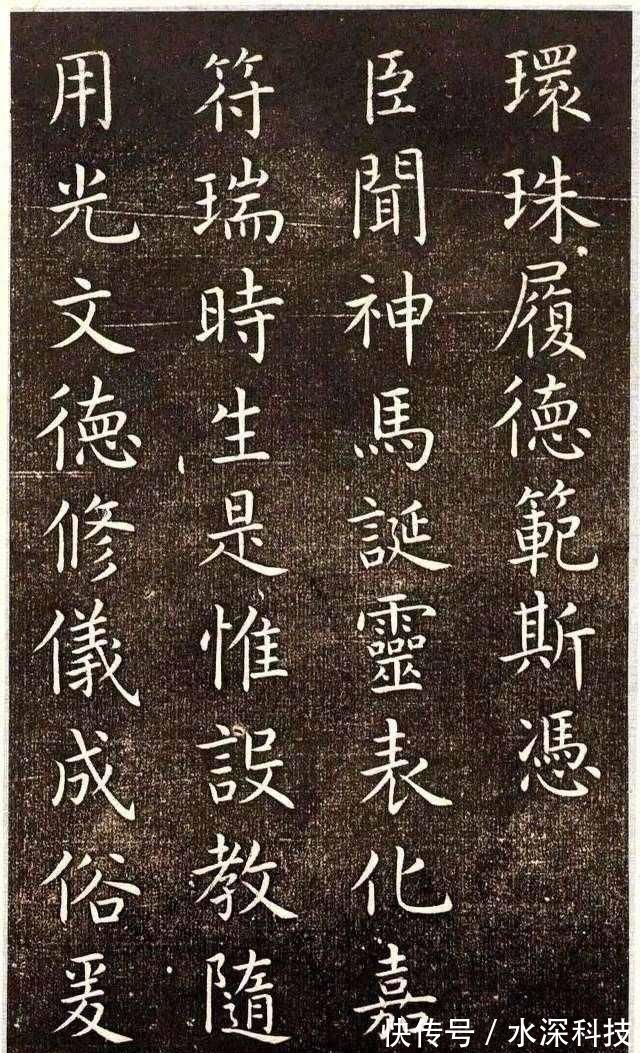 環珠履德範斯憑
臣聞神馬誕靈表化嘉
符瑞時生是惟設教隨
用光文德修儀成俗爰
快传号／水深科技